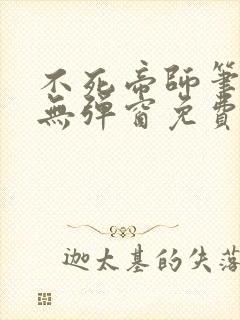 不死帝師筆
無彈窗免費
迦太基的失落